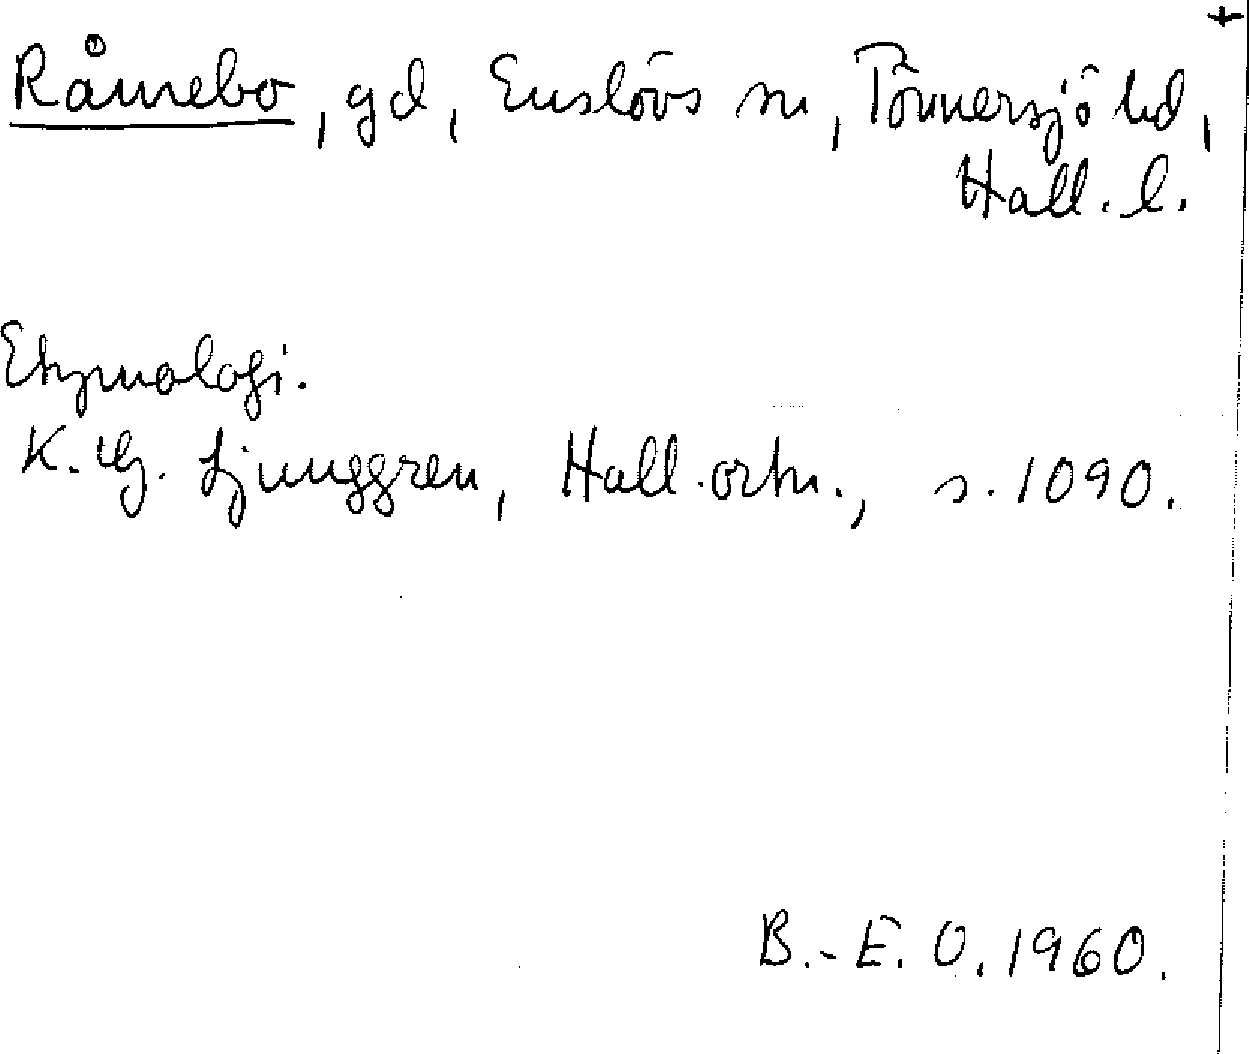 +
Råmebo, gd, Enslövs sn, Tönnersjö hd,
Hall. l.
Etymologi.
K. G. Ljunggren, Hall. ortn., s. 1090.
B.-E. O. 1960.